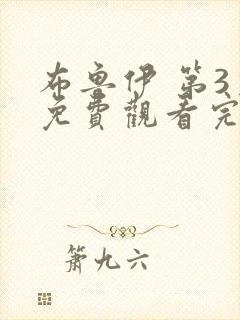 布魯伊 第3
免費觀看完
簫九六